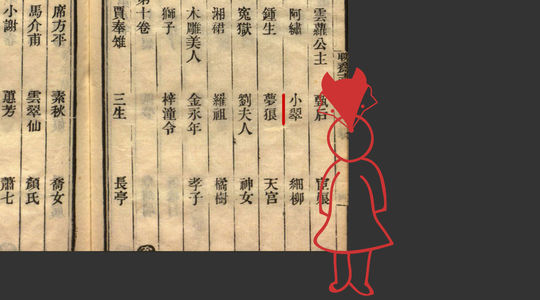 雲蘿公主 甄后 宦娘
阿繡 小翠 細柳
鍾生 夢狼 天宮
寃獄 劉夫人 神女
湘裙 羅祖 橘樹
木雕美人 金永年 孝子
獅子 梓潼令
第十卷
賈奉雉 三生 長亭
席方平 素秋 喬女
馬介甫 雲翠仙 顏氏
小謝 蕙芳 蕭七